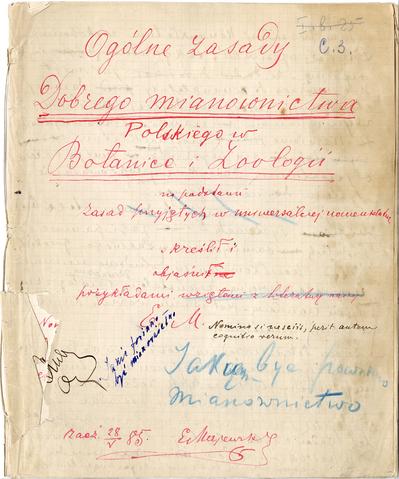 C. 3.
Ogólne zasady
Dobrego mianownictwa
Polskiego w
Botanice i Zoologii
na podstawie
zasad przyjętych w uniwersalnej nomenklaturze
skreślił i
objaśnił
przykładami wziętemi z literatury
E. M.
Nomina si nescis, perit autem
cognitio rerum.
Jakie powinno
być mianownictwo
Jakiem być powinno
mianownictwo
zacz. 28/V 85.
E Majewski